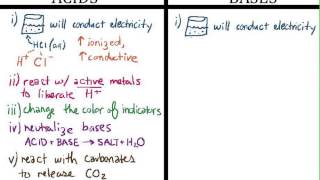 ACIDS
i) will conduct electricity
HCl(aq) ↑ ionized,
H⁺ Cl⁻ ↑ conductive
ii) react w/ active metals
to liberate H⁺
iii) change the color of indicators
iv) neutralize bases
ACID + BASE → SALT + H₂O
v) react with carbonates
to release CO₂
BASES
i) will conduct electricity